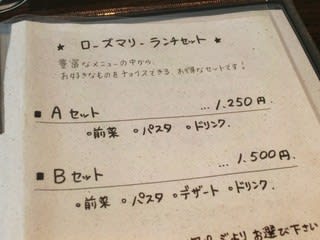 ★ ローズマリーランチセット ★
豊富なメニューの中から、
お好きなものをチョイスできる、お得なセットです！
■ Aセット … 1,250円.
○前菜 ○パスタ ○ドリンク.
■ Bセット … 1,500円.
○前菜 ○パスタ ○デザート ○ドリンク.
よりお選び下さい